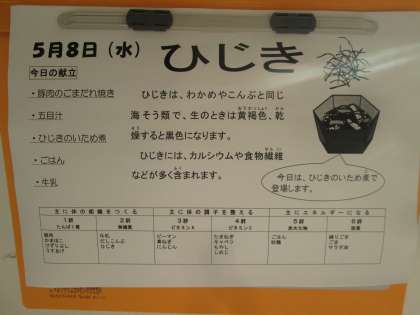 5月8日（水） ひじき
今日の献立
・豚肉のごまだれ焼き
・五目汁
・ひじきのいため煮
・ごはん
・牛乳
ひじきは、わかめやこんぶと同じ
海そう類で、生のときは黄褐色、乾
燥すると黒色になります。
ひじきには、カルシウムや食物繊維
などが多く含まれます。
今日は、ひじきのいため煮で
登場します。
主に体の組織をつくる 主に体の調子を整える 主にエネルギーになる
1群 2群 3群 4群 5群 6群
たんぱく質 無機質 ビタミンA ビタミンC 炭水化物 脂質
豚肉 牛乳 ピーマン たまねぎ ごはん 練りごま
かまぼこ だしこんぶ 葉ねぎ キャベツ 砂糖 ごま
ひじき にんじん もやし サラダ油
うすあげ しめじ